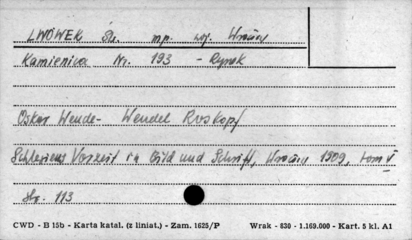 LWÓWEK Śl. mp. woj. Wrocław
Kamienica Nr. 193 - Rynek
Oskar Wende- Wendel Roskopf
Schlesiens Vorzeit in Bild und Schrift, 1909, tom V
Str. 113
CWD - B 15b - Karta katal. (z liniat.) - Zam. 1625/P Wrak - 830 - 1.169.000 - Kart. 5 kl. A1